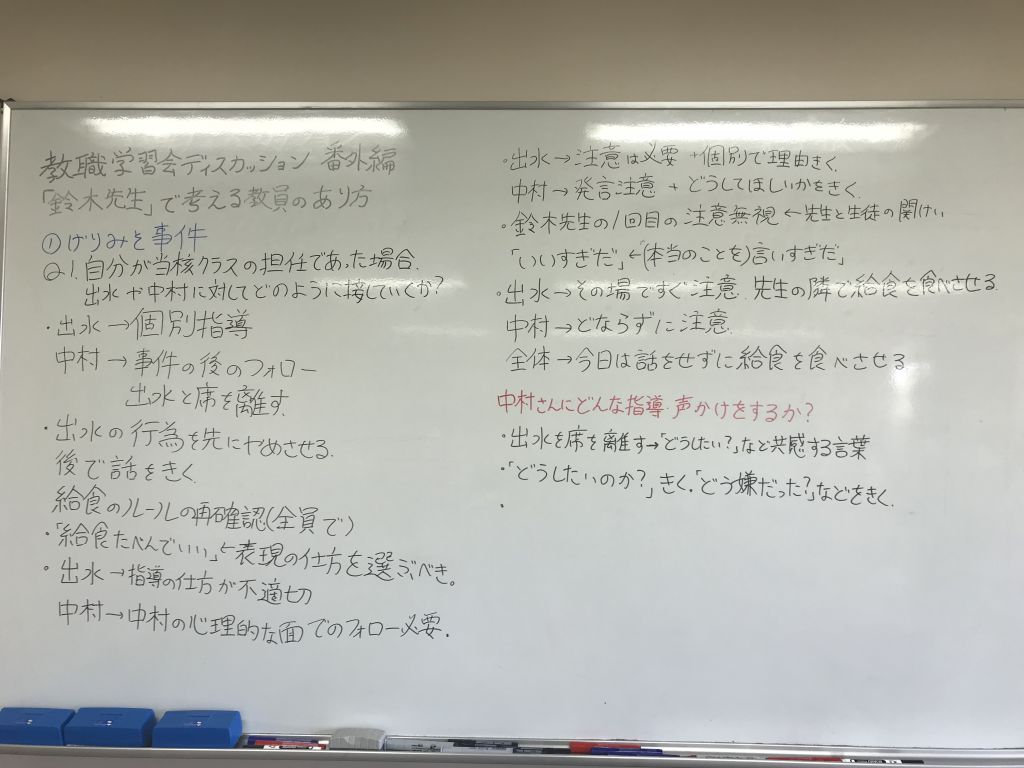 教職学習会ディスカッション 番外編
「鈴木先生」で考える教員のあり方
①げりみそ事件
Q1.自分が当核クラスの担任であった場合、
出水や中村に対してどのように接していくか?
・出水→個別指導
中村→事件の後のフォロー
出水と席を離す
・出水の行為を先にやめさせる。
後で話をきく
給食のルールの再確認(全員で)
・「給食たべんでいい」←表現の仕方を選ぶべき。
・出水→指導の仕方が不適切
中村→中村の心理的な面でのフォロー必要.
・出水→注意は必要 +個別で理由きく.
中村→発言注意 + どうしてほしいかをきく.
・鈴木先生の1回目の注意無視 ←先生と生徒の関けい
「いいすぎだ」←(本当のことを)言いすぎだ」
・出水→その場ですぐ注意. 先生の隣で給食を食べさせる.
中村→どならずに注意.
全体→今日は話をせずに給食を食べさせる
中村さんにどんな指導・声かけをするか?
・出水を席を離す→「どうしたい?」など共感する言葉
・「どうしたいのか?」きく.「どう嫌だった?」などをきく.
・